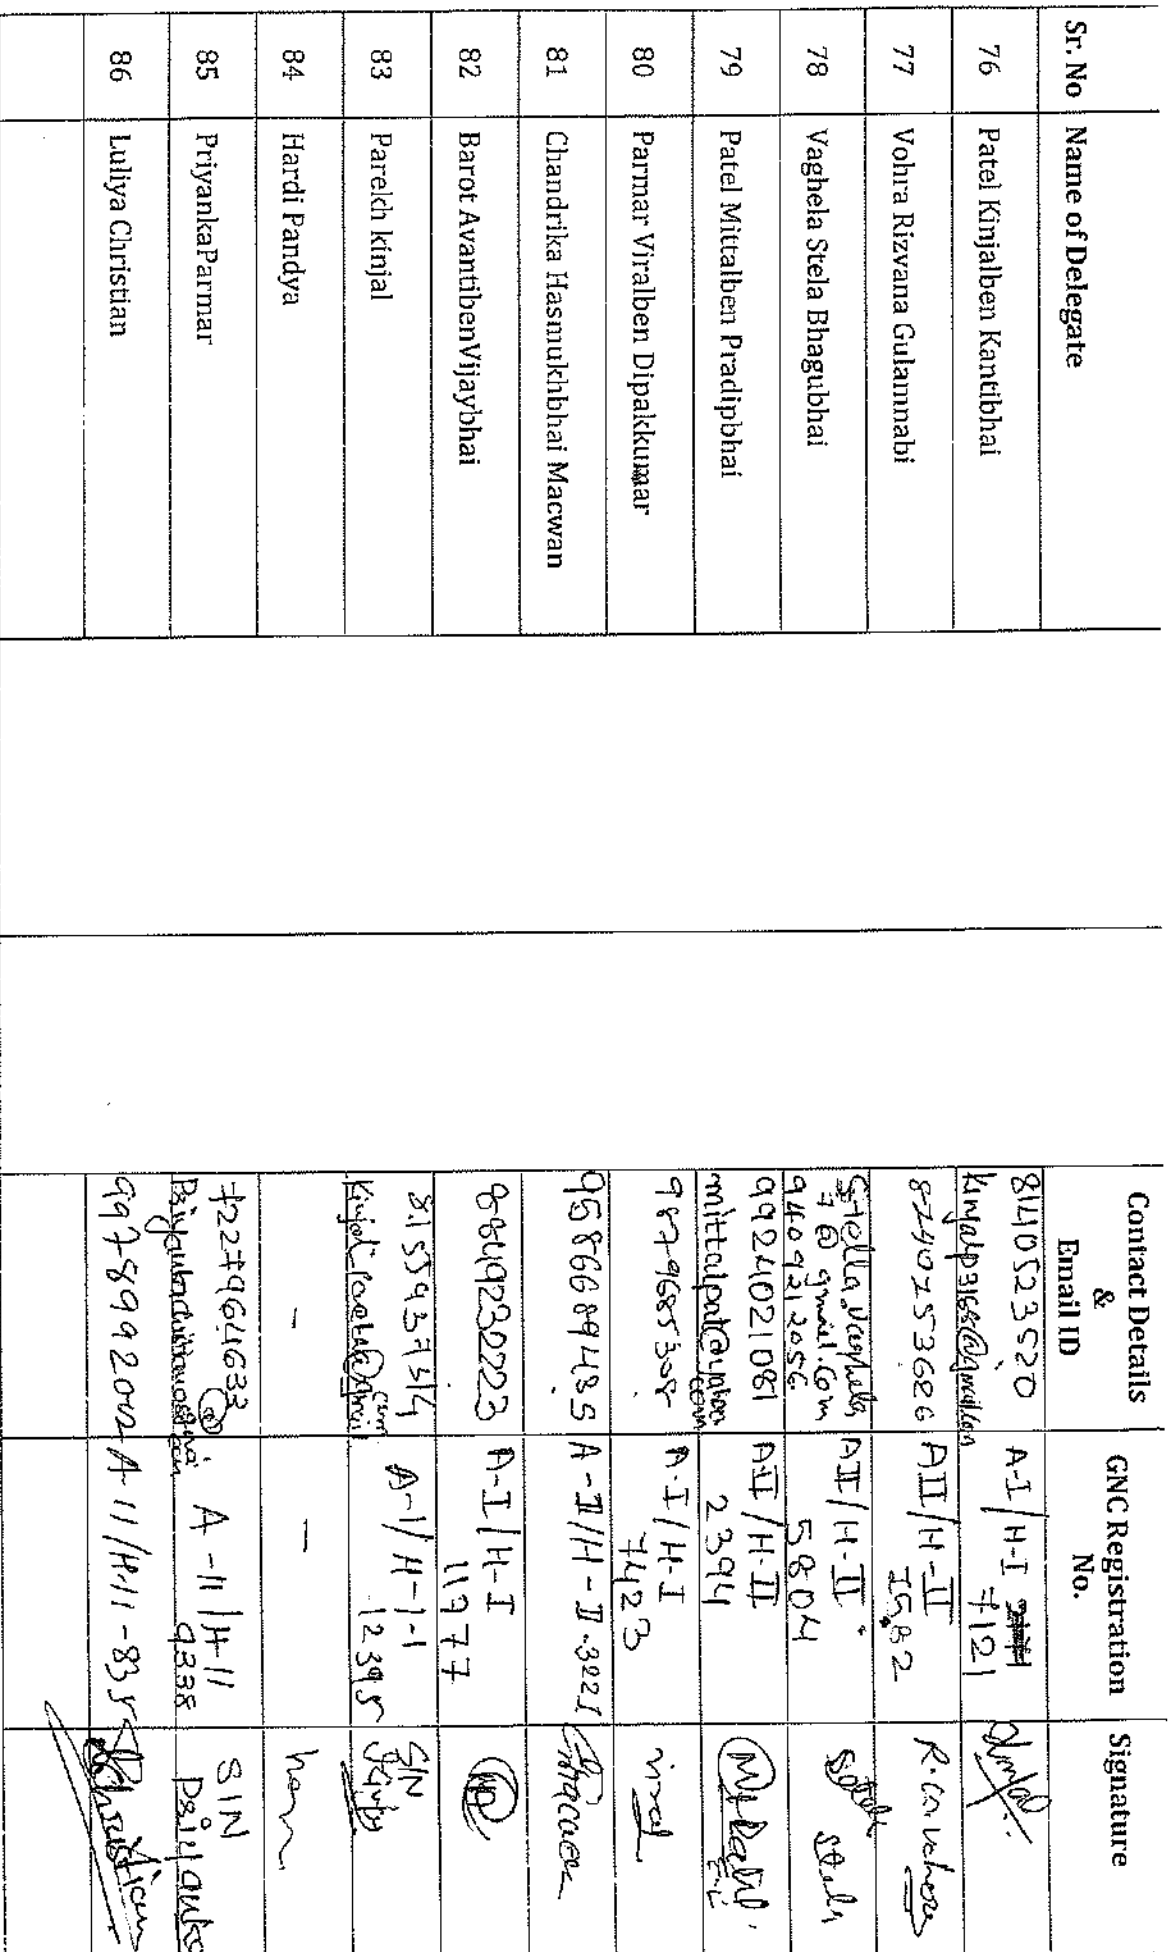 Sr. No Name of Delegate Contact Details & Email ID GNC Registration No. Signature
76 Patel Kinjalben Kantibhai 8140523520 A-I/H-I
kinjalp3165@gmail.com 7121
77 Vohra Rizvana Gulamnabi 8740253686 AII/H-II R.G. Vohera
1582
78 Vaghela Stela Bhagubhai Stella.vaghela AII/H-II stela
7@gmail.com 5804
9409212056
79 Patel Mittalben Pradipbhai 9924021081 AII/H-II
mittalpat@yahoo.com 2394
80 Parmar Viralben Dipakkumar 9879685308 A-I/H-I viral
7423
81 Chandrika Hasmukhbhai Macwan 9586689435 A-II/H-II-3221
82 Barot AvantibenVijaybhai 8849232223 A-I/H-I
11977
83 Parekh kinjal 8155937314 A-1/H-1-1 S/N
12395
84 Hardi Pandya - -
85 PriyankaParmar 7227964633 A-11/H-11 S/N
9338 Priyanka
86 Luliya Christian 9978999200 A-11/H-11-835 Christian